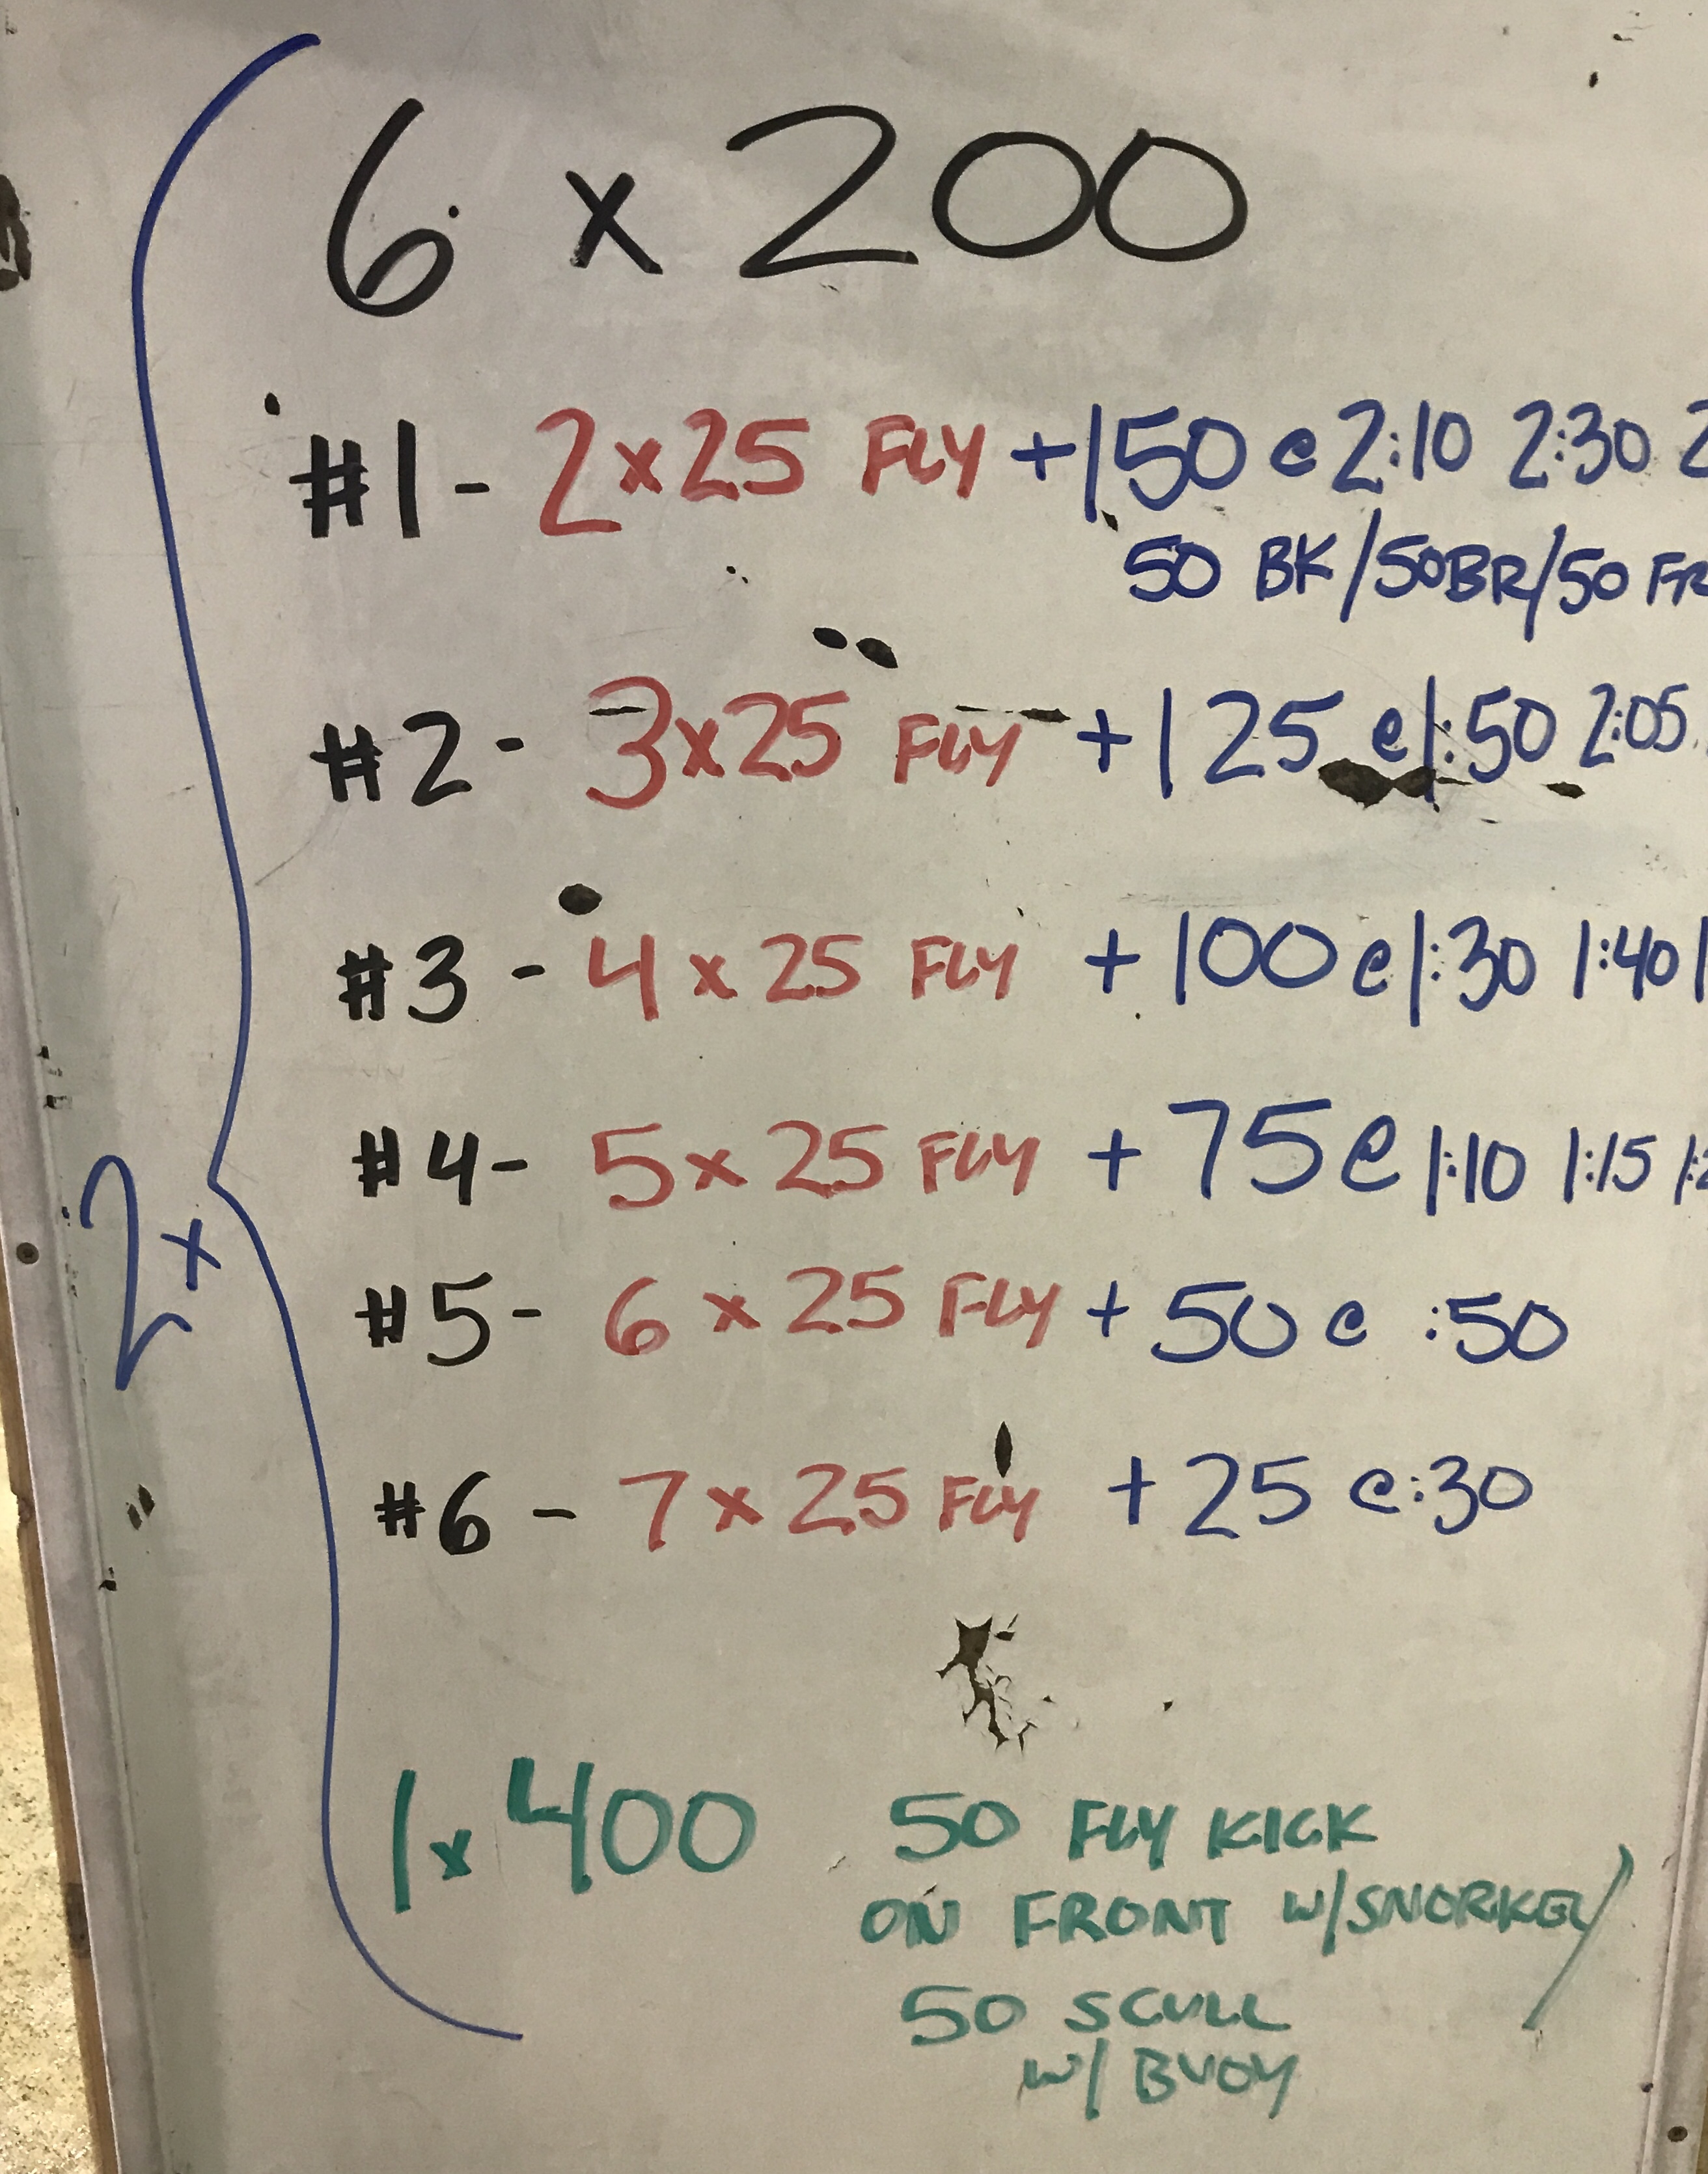 6 x 200
#1 - 2 x 25 FLY + 150 @ 2:10 2:30
50 BK / 50 BR / 50 FR
#2 - 3 x 25 FLY + 125 @ 1:50 2:05
#3 - 4 x 25 FLY + 100 @ 1:30 1:40
#4 - 5 x 25 FLY + 75 @ 1:10 1:15
2x
#5 - 6 x 25 FLY + 50 @ :50
#6 - 7 x 25 FLY + 25 @ :30
1 x 400 50 FLY KICK
ON FRONT W/SNORKEL /
50 SCULL
W/ BUOY